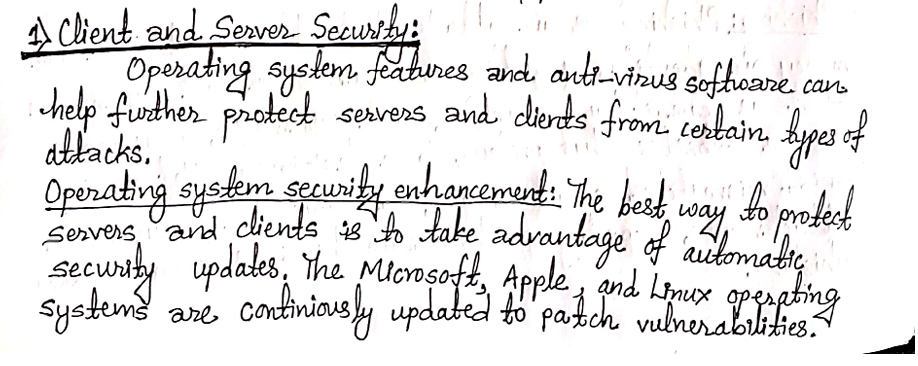 1) Client and Server Security:
Operating system features and anti-virus software can
help further protect servers and clients from certain types of
attacks.
Operating system security enhancement: The best way to protect
servers and clients is to take advantage of automatic
security updates. The Microsoft, Apple, and Linux operating
systems are continiously updated to patch vulnerabilities.